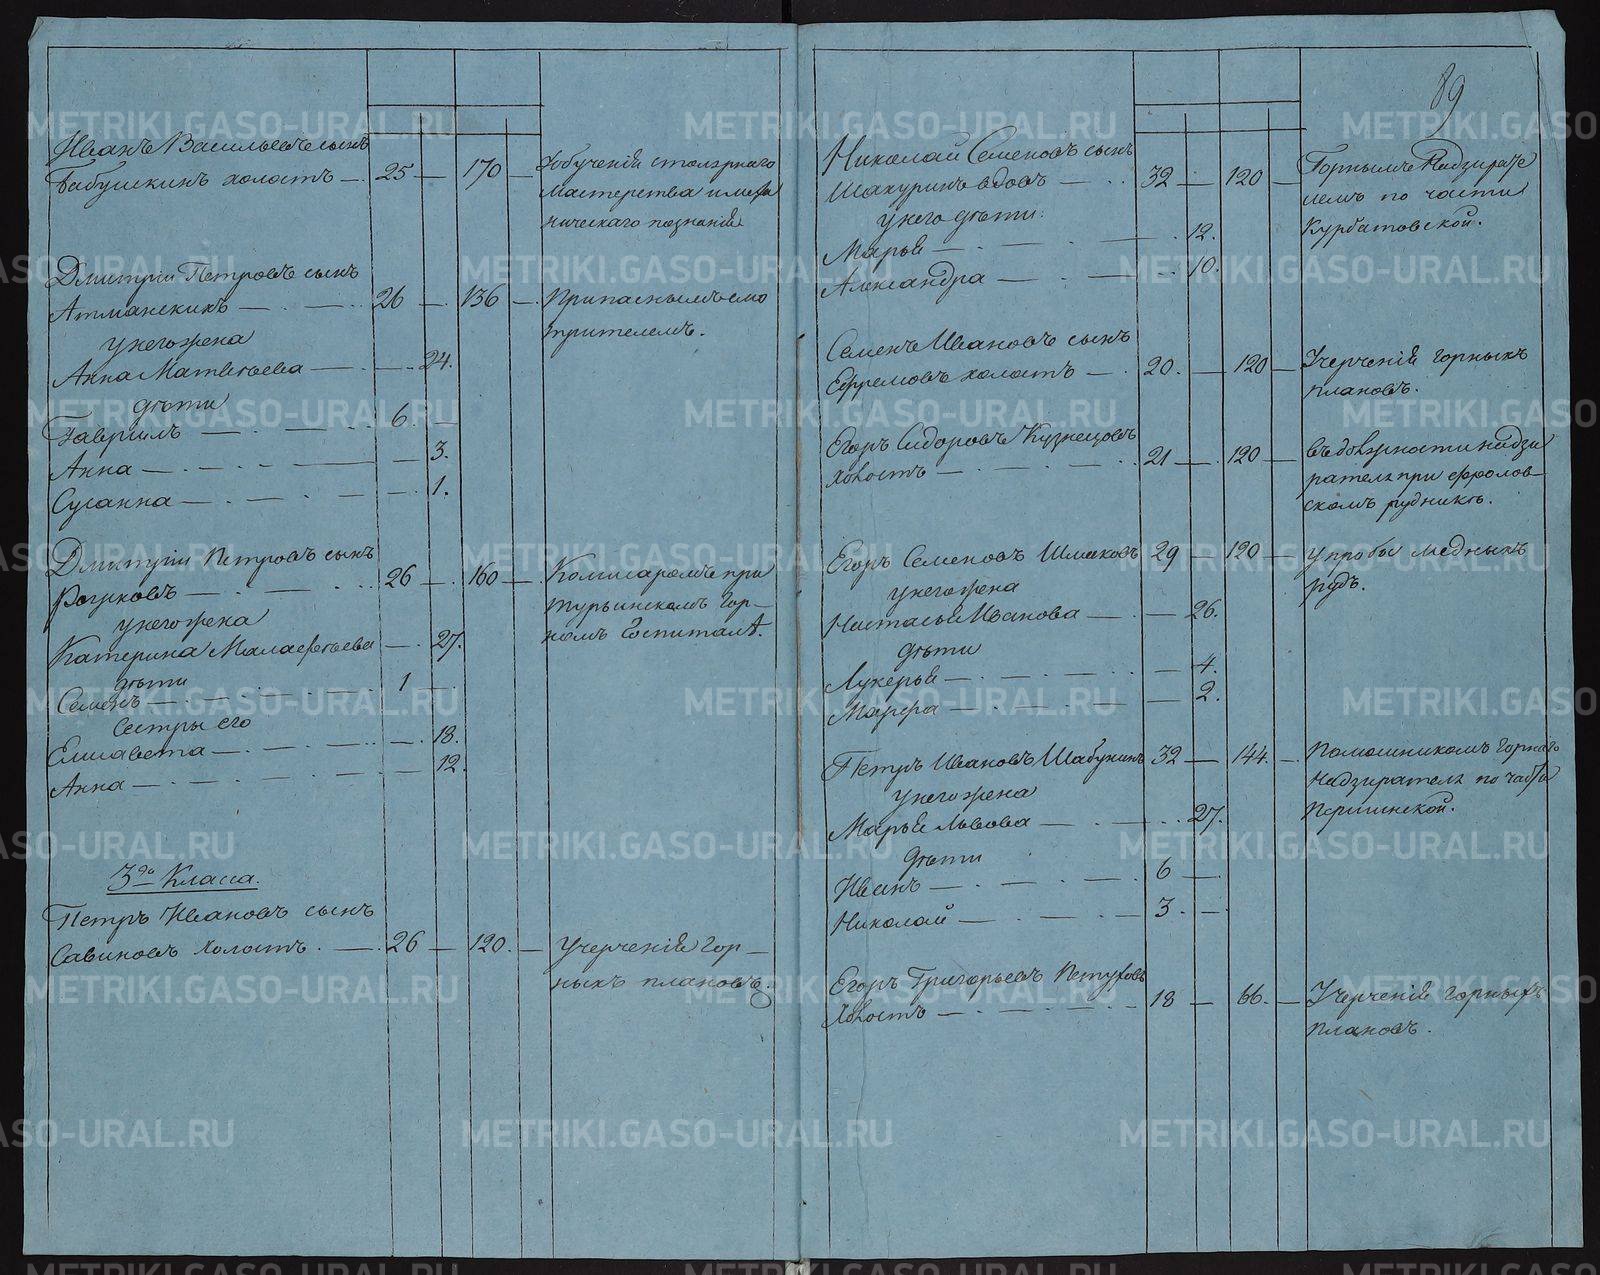 Иванъ Васильевъ сынъ
Бабушкинъ холостъ — 25 — 170 — Уобученiя столярнаго
мастерства и меха
ническаго познанiя
Дмитрiй Петровъ сынъ
Атманскихъ — 26 — 136 — Припаснымъ смо
трителемъ.
у него жена
Анна Матвѣева — 24.
дѣти
Гаврiилъ — 6. —
Анна — 3.
Сусанна — 1.
Дмитрiй Петровъ сынъ
26 — 160 — Комисаромъ при
Турьинскомъ Гор-
номъ Госпиталѣ.
у него жена
Катерина Малафѣева — 27.
дѣти
Семенъ — 1
Сестры его
Елисавета — 18.
Анна — 12.
3го Класса.
Петръ Ивановъ сынъ
Савиновъ холостъ. — 26 — 120. — Учерченiя гор-
ныхъ плановъ.
89
Николай Семеновъ сынъ
Шахуринъ вдовъ — 32 — 120 — Горнымъ Надзирате
лемъ по части
Курбатовской.
у него дѣти:
Марья — 12.
Александра — 10.
Семенъ Ивановъ сынъ
Ефремовъ холостъ — 20. — 120 — Учерченiя горныхъ
плановъ.
Егоръ Сидоровъ Кузнецовъ
холостъ — 21 — 120 — въ должности надзи
рателя при Фролов-
скомъ рудникѣ.
Егоръ Семеновъ Шлаковъ 29 — 120 — у пробы медныхъ
рудъ.
у него жена
Настасья Иванова — 26.
дѣти
Лукерья — 4.
Марфа — 2.
Петръ Ивановъ Шабунинъ 32 — 144. — Помошникомъ Горнаго
Надзирателя по части
Першинской.
у него жена
Марья Львова — 27.
дѣти
Иванъ — 6 —
Николай — 3. —
Егоръ Григорьевъ Петуховъ
холостъ — 18 — 66. — Учерченiя горныхъ
плановъ.
METRIKI.GASO-URAL.RU